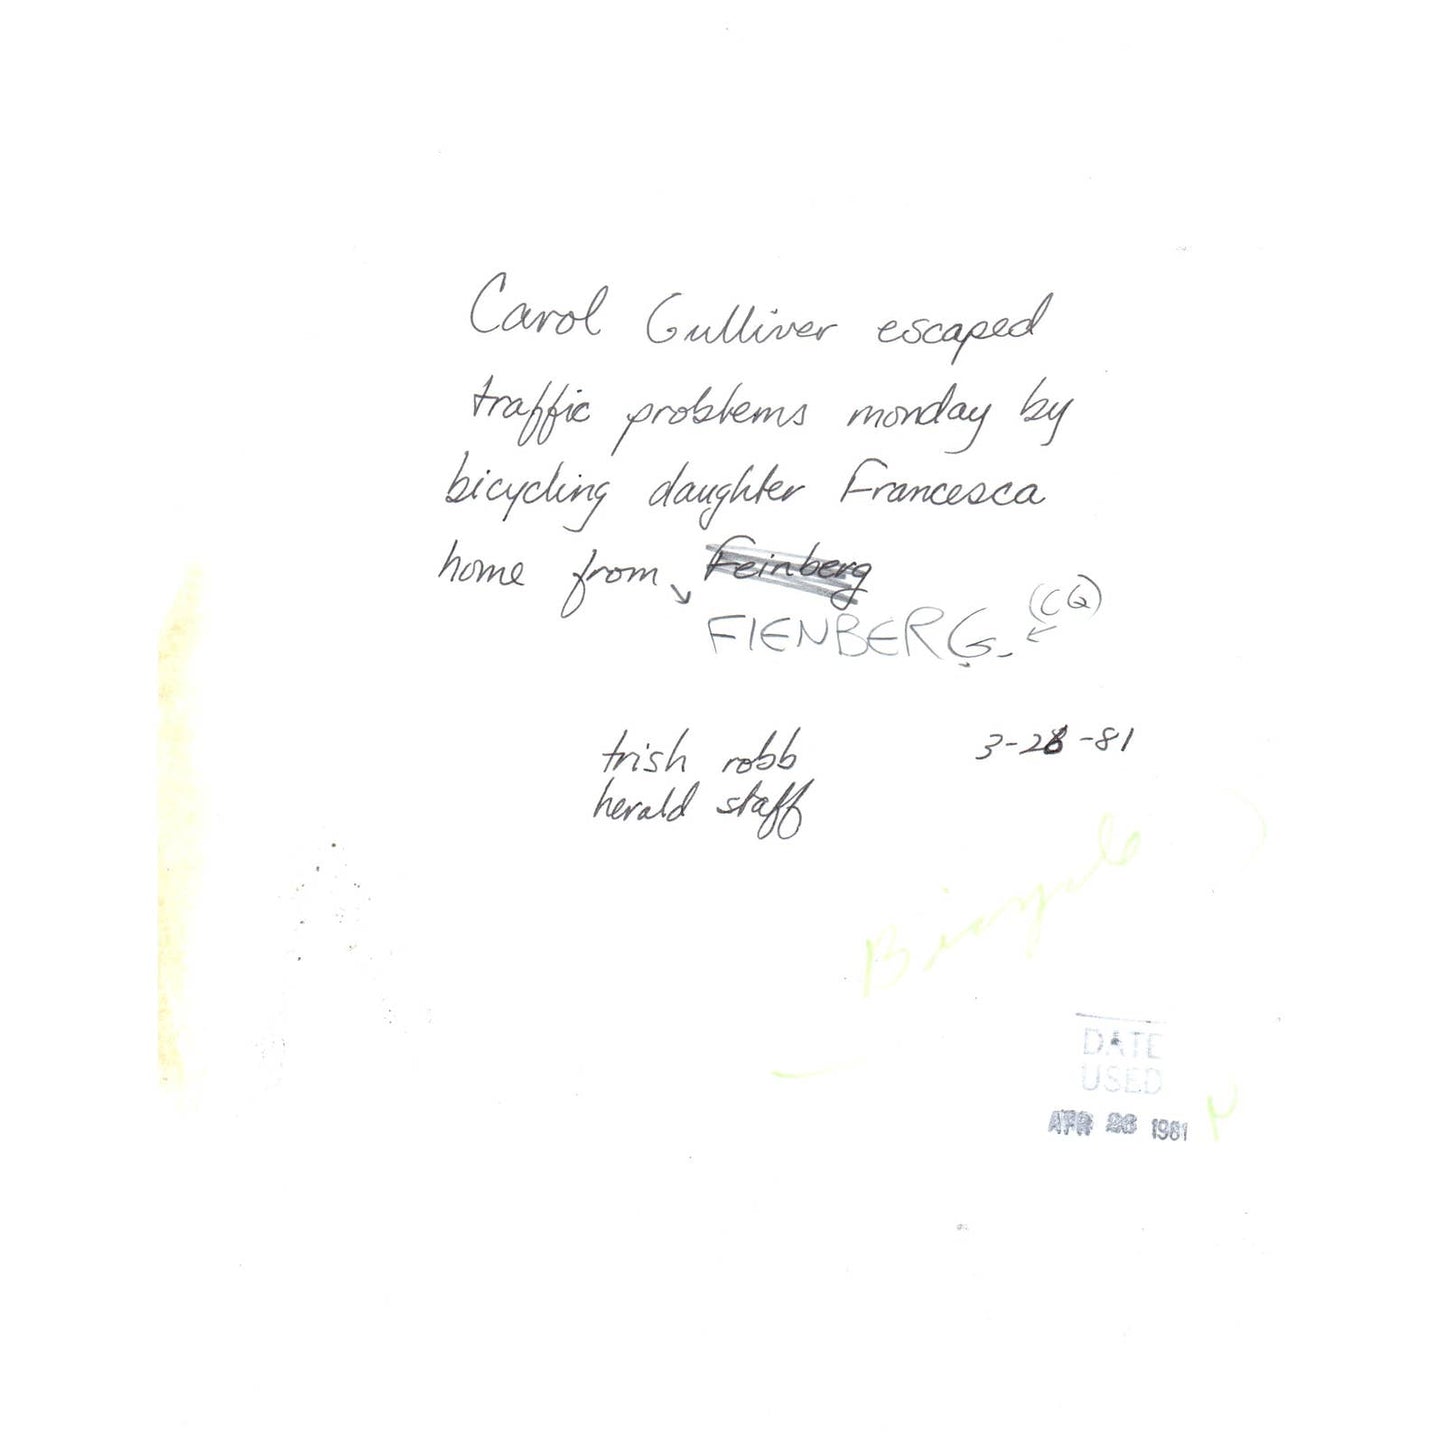 Carol Gulliver escaped
traffic problems monday by
bicycling daughter Francesca
home from Feinberg
FIENBERG. (CQ)
trish robb 3-28-81
herald staff
Bicycle
DATE
USED
APR 26 1981